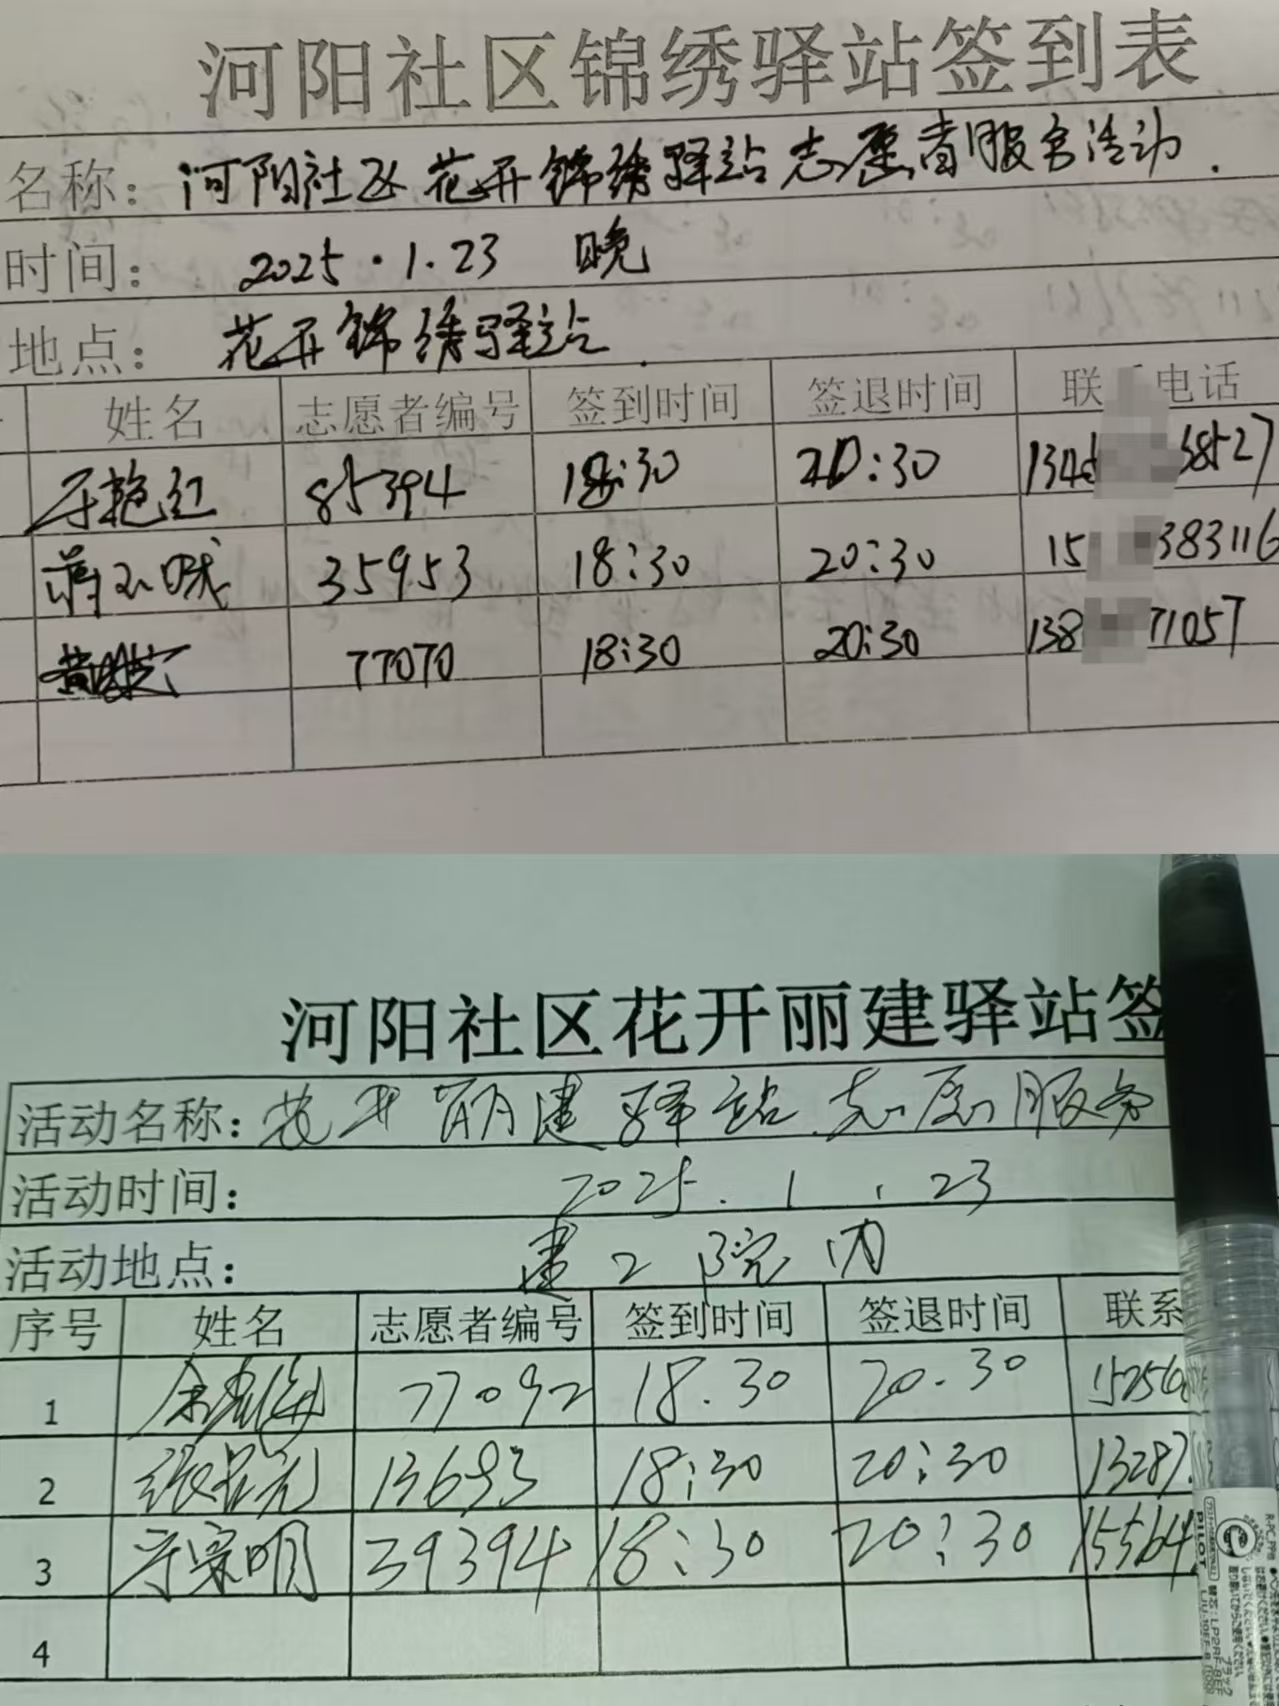 河阳社区锦绣驿站签到表
名称：河阳社区花开锦绣驿站志愿者服务活动.
时间：2025.1.23 晚
地点：花开锦绣驿站.
姓名 志愿者编号 签到时间 签退时间 联 电话
于艳红 85394 18:30 20:30 134 38527
蒋 35953 18:30 20:30 15 383116
黄 77070 18:30 20:30 138 71057
河阳社区花开丽建驿站签
活动名称：花开丽建驿站志愿服务
活动时间：2025.1.23
活动地点：建2院内
序号 姓名 志愿者编号 签到时间 签退时间 联系
1 77092 18.30 20.30 15256
2 张 13693 18:30 20:30 13287
3 于宗明 39394 18:30 20:30 15564
4
PILOT